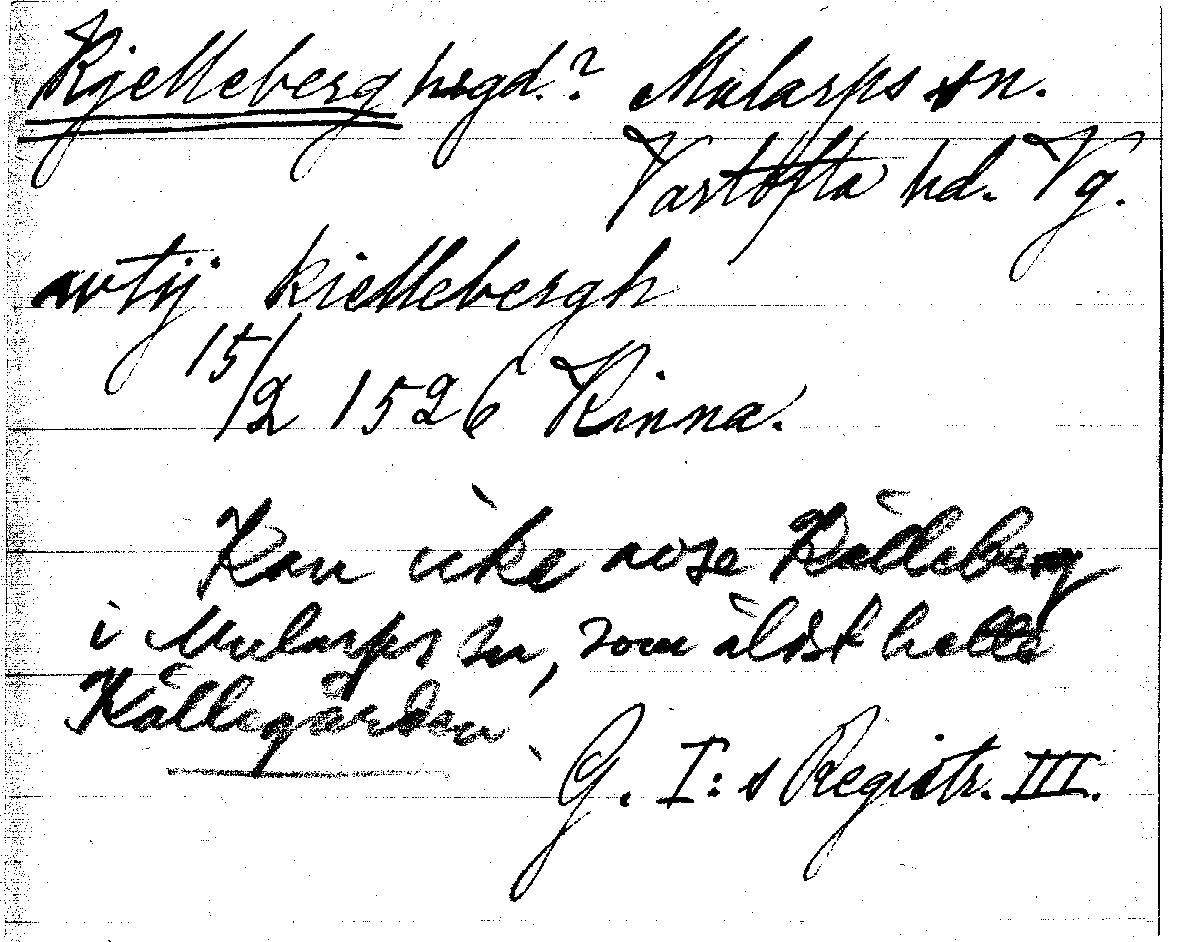 Kjelleberg hsgd.? Mularps sn.
Vartofta hd. Vg.
wtij kiellebergh
15/2 1526 Kinna.
Kan icke avse Källeberg
i Mularps sn, som äldst hette
Källegården.
G. I:s Registr. III.